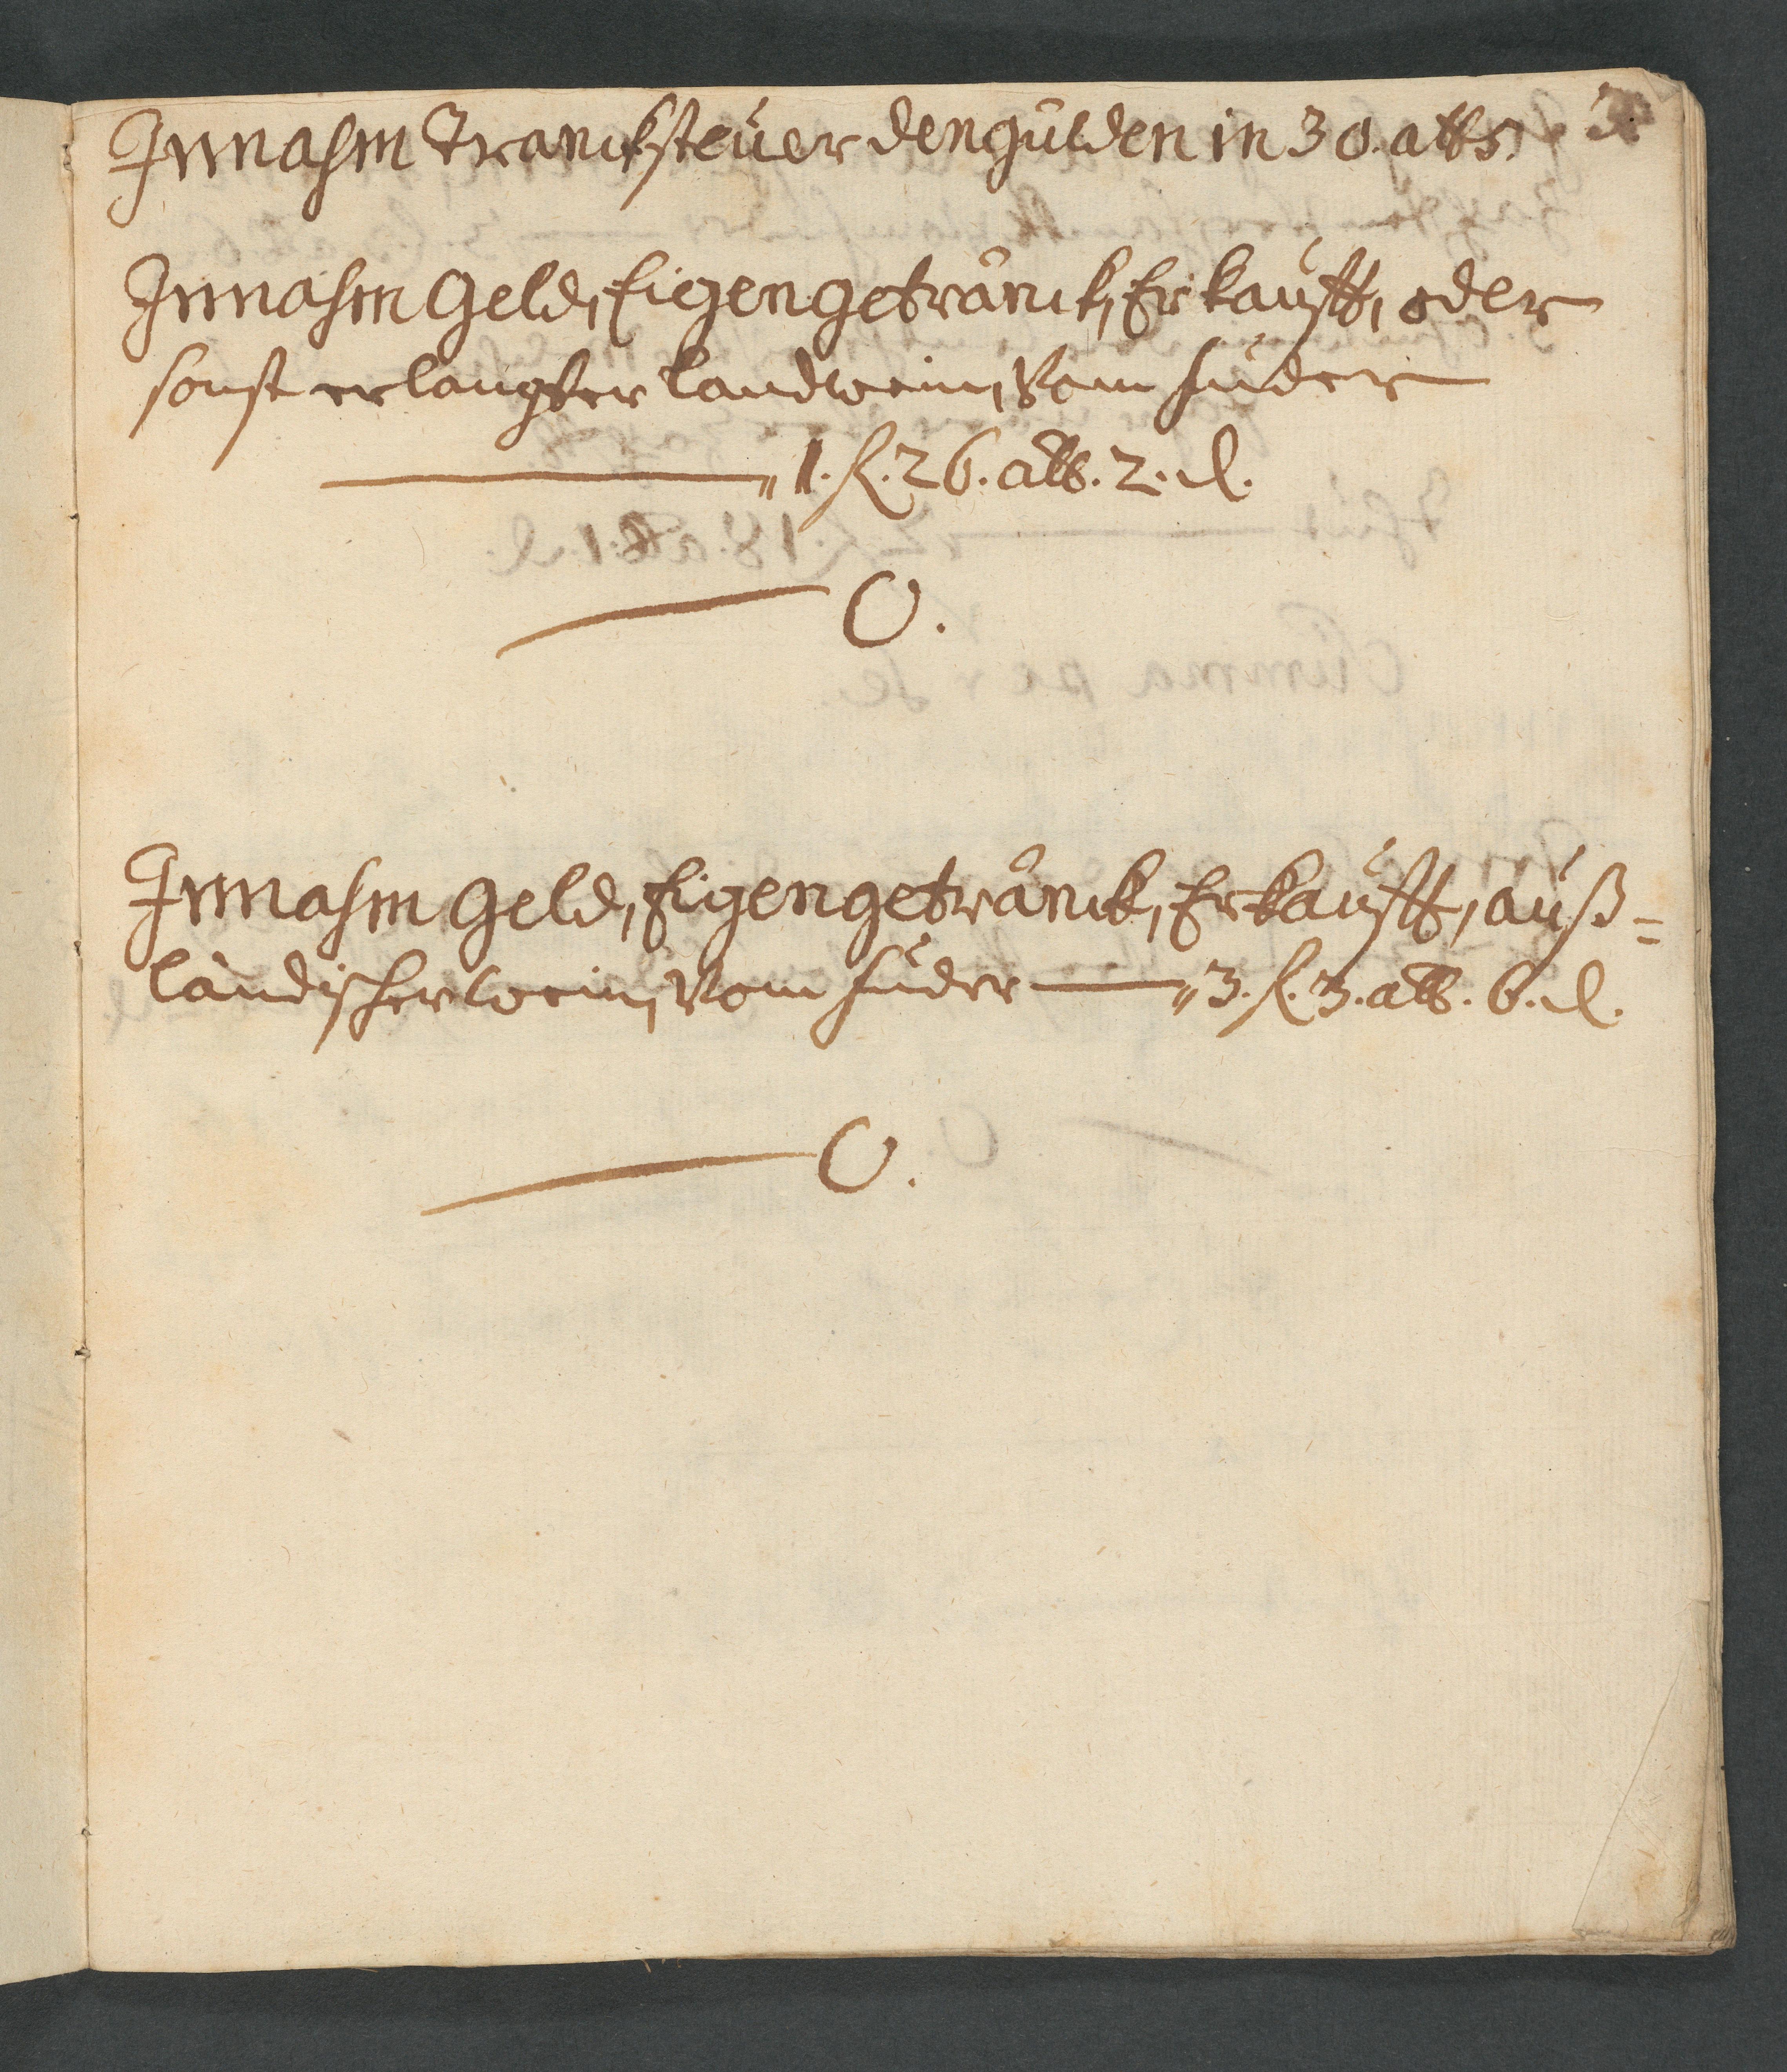 Innahm Trancksteuer den gulden in 30. albs.
Innahm Geld, Eigengetränck, Erkaufft, oder
sonst erlangter landwein, Vom fuder
1. fl. 26. alb. 2. d.
0.
Innahm Geld, Eigengetränck, Erkaufft, auß=
ländischer wein, Vom fuder 3. fl. 3. alb. 6. d.
0.